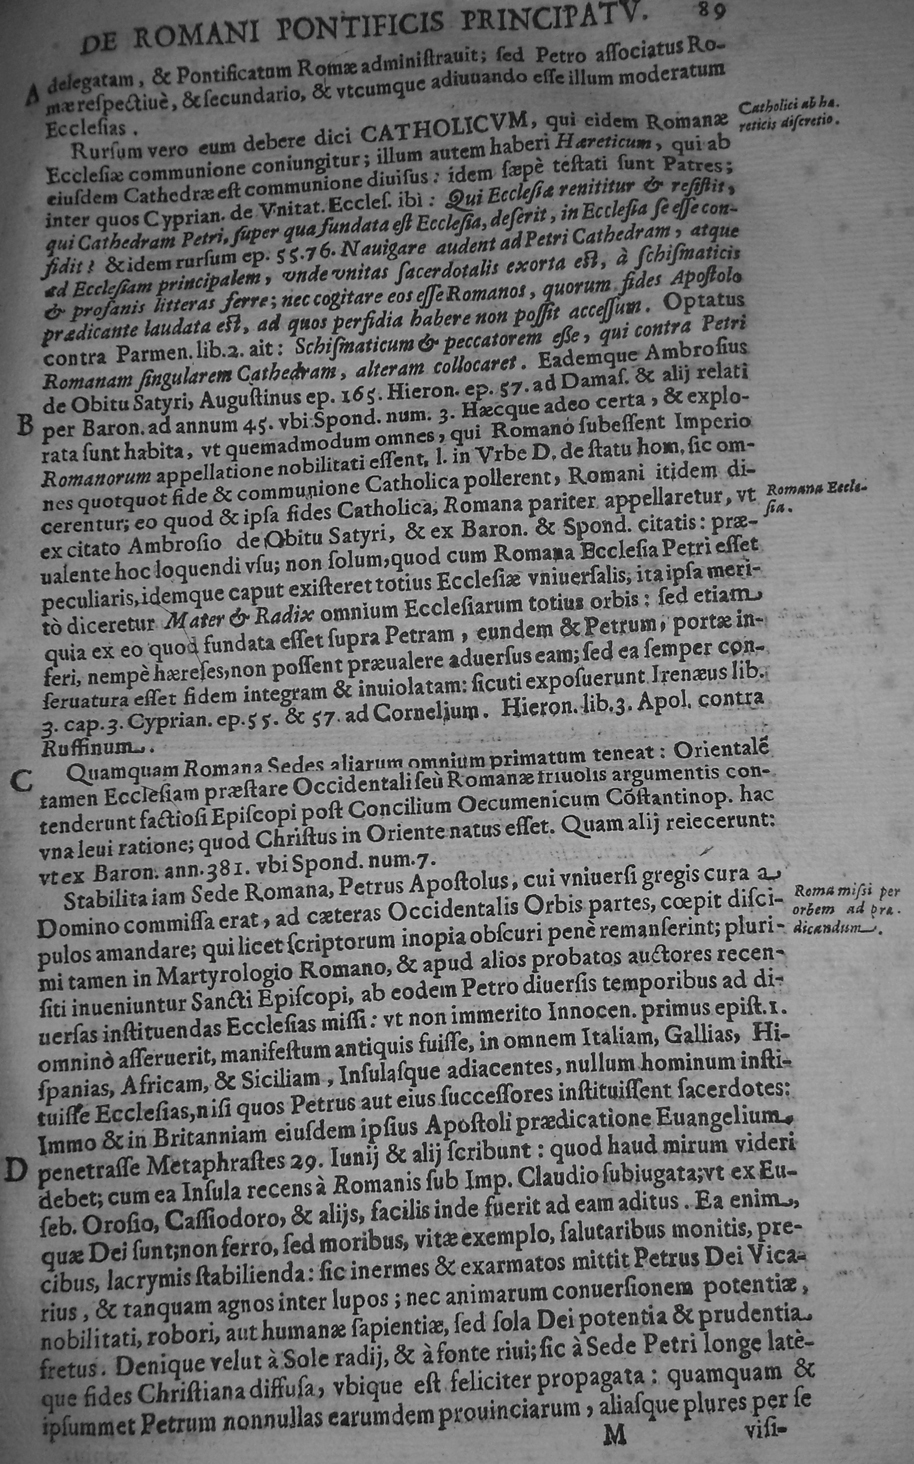 DE ROMANI PONTIFICIS PRINCIPATV. 89
A delegatam, & Pontificatum Romæ adminiſtrauit; ſed Petro aſſociatus Ro-
mæ reſpectiuè, & ſecundario, & vtcumque adiuuando eſſe illum moderatum
Eccleſias.
Rurſum vero eum debere dici CATHOLICVM, qui eidem Romanæ
Catholici ab hæ-
reticis diſcretio.
Eccleſiæ communione coniungitur; illum autem haberi Hæreticum, qui ab
eiuſdem Cathedræ eſt communione diuiſus: idem ſæpè teſtati ſunt Patres;
inter quos Cyprian. de Vnitat. Eccleſ. ibi: Qui Eccleſiæ renititur & reſiſtit,
qui Cathedram Petri, ſuper qua fundata eſt Eccleſia, deſerit, in Eccleſia ſe eſſe con-
fidit? & idem rurſum ep. 55. 76. Nauigare audent ad Petri Cathedram, atque
ad Eccleſiam principalem, vnde vnitas ſacerdotalis exorta eſt, à ſchiſmaticis
& profanis litteras ferre; nec cogitare eos eſſe Romanos, quorum fides Apoſtolo
prædicante laudata eſt, ad quos perfidia habere non poſſit acceſſum. Optatus
contra Parmen. lib. 2. ait: Schiſmaticum & peccatorem eſſe, qui contra Petri
Romanam ſingularem Cathedram, alteram collocaret. Eademque Ambroſius
de Obitu Satyri, Auguſtinus ep. 165. Hieron. ep. 57. ad Damaſ. & alij relati
B per Baron. ad annum 45. vbi Spond. num. 3. Hæcque adeo certa, & explo-
rata ſunt habita, vt quemadmodum omnes, qui Romano ſubeſſent Imperio
Romanorum appellatione nobilitati eſſent, l. in Vrbe D. de ſtatu hom. ſic om-
nes quotquot fide & communione Catholica pollerent, Romani itidem di-
cerentur; eo quod & ipſa fides Catholica, Romana pariter appellaretur, vt
Romana Eccle-
ſia.
ex citato Ambroſio de Obitu Satyri, & ex Baron. & Spond. citatis: præ-
ualente hoc loquendi vſu; non ſolum, quod cum Romana Eccleſia Petri eſſet
peculiaris, idemque caput exiſteret totius Eccleſiæ vniuerſalis, ita ipſa meri-
tò diceretur Mater & Radix omnium Eccleſiarum totius orbis: ſed etiam
quia ex eo quod fundata eſſet ſupra Petram, eundem & Petrum, portæ in-
feri, nempè hæreſes, non poſſent præualere aduerſus eam; ſed ea ſemper con-
ſeruatura eſſet fidem integram & inuiolatam: ſicuti expoſuerunt Irenæus lib.
3. cap. 3. Cyprian. ep. 55. & 57. ad Cornelium. Hieron. lib. 3. Apol. contra
Ruffinum.
C Quamquam Romana Sedes aliarum omnium primatum teneat: Orientalẽ
tamen Eccleſiam præſtare Occidentali ſeù Romanæ friuolis argumentis con-
tenderunt factioſi Epiſcopi poſt Concilium Oecumenicum Cõſtantinop. hac
vna leui ratione; quod Chriſtus in Oriente natus eſſet. Quam alij reiecerunt:
vt ex Baron. ann. 381. vbi Spond. num. 7.
Stabilita iam Sede Romana, Petrus Apoſtolus, cui vniuerſi gregis cura a
Roma miſſi per
orbem ad præ-
dicandum.
Domino commiſſa erat, ad cæteras Occidentalis Orbis partes, cœpit diſci-
pulos amandare; qui licet ſcriptorum inopia obſcuri penè remanſerint; pluri-
mi tamen in Martyrologio Romano, & apud alios probatos auctores recen-
ſiti inueniuntur Sancti Epiſcopi, ab eodem Petro diuerſis temporibus ad di-
uerſas inſtituendas Eccleſias miſſi: vt non immerito Innocen. primus epiſt. 1.
omninò aſſeruerit, manifeſtum antiquis fuiſſe, in omnem Italiam, Gallias, Hi-
ſpanias, Africam, & Siciliam, Inſulaſque adiacentes, nullum hominum inſti-
tuiſſe Eccleſias, niſi quos Petrus aut eius ſucceſſores inſtituiſſent ſacerdotes:
Immo & in Britanniam eiuſdem ipſius Apoſtoli prædicatione Euangelium
D penetraſſe Metaphraſtes 29. Iunij & alij ſcribunt: quod haud mirum videri
debet; cum ea Inſula recens à Romanis ſub Imp. Claudio ſubiugata; vt ex Eu-
ſeb. Oroſio, Caſſiodoro, & alijs, facilis inde fuerit ad eam aditus. Ea enim,
quæ Dei ſunt; non ferro, ſed moribus, vitæ exemplo, ſalutaribus monitis, pre-
cibus, lacrymis ſtabilienda: ſic inermes & exarmatos mittit Petrus Dei Vica-
rius, & tanquam agnos inter lupos; nec animarum conuerſionem potentiæ,
nobilitati, robori, aut humanæ ſapientiæ, ſed ſola Dei potentia & prudentia
fretus. Denique velut à Sole radij, & à fonte riui; ſic à Sede Petri longe latè-
que fides Chriſtiana diffuſa, vbique eſt feliciter propagata: quamquam &
ipſummet Petrum nonnullas earumdem prouinciarum, aliaſque plures per ſe
M viſi-